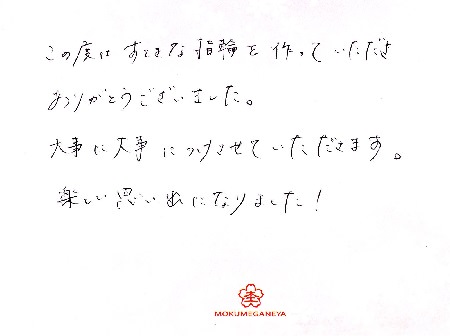 この度は すてきな指輪を作っていただき
ありがとうございました。
大事に大事につけさせていただきます。
楽しい思い出になりました！
MOKUMEGANEYA